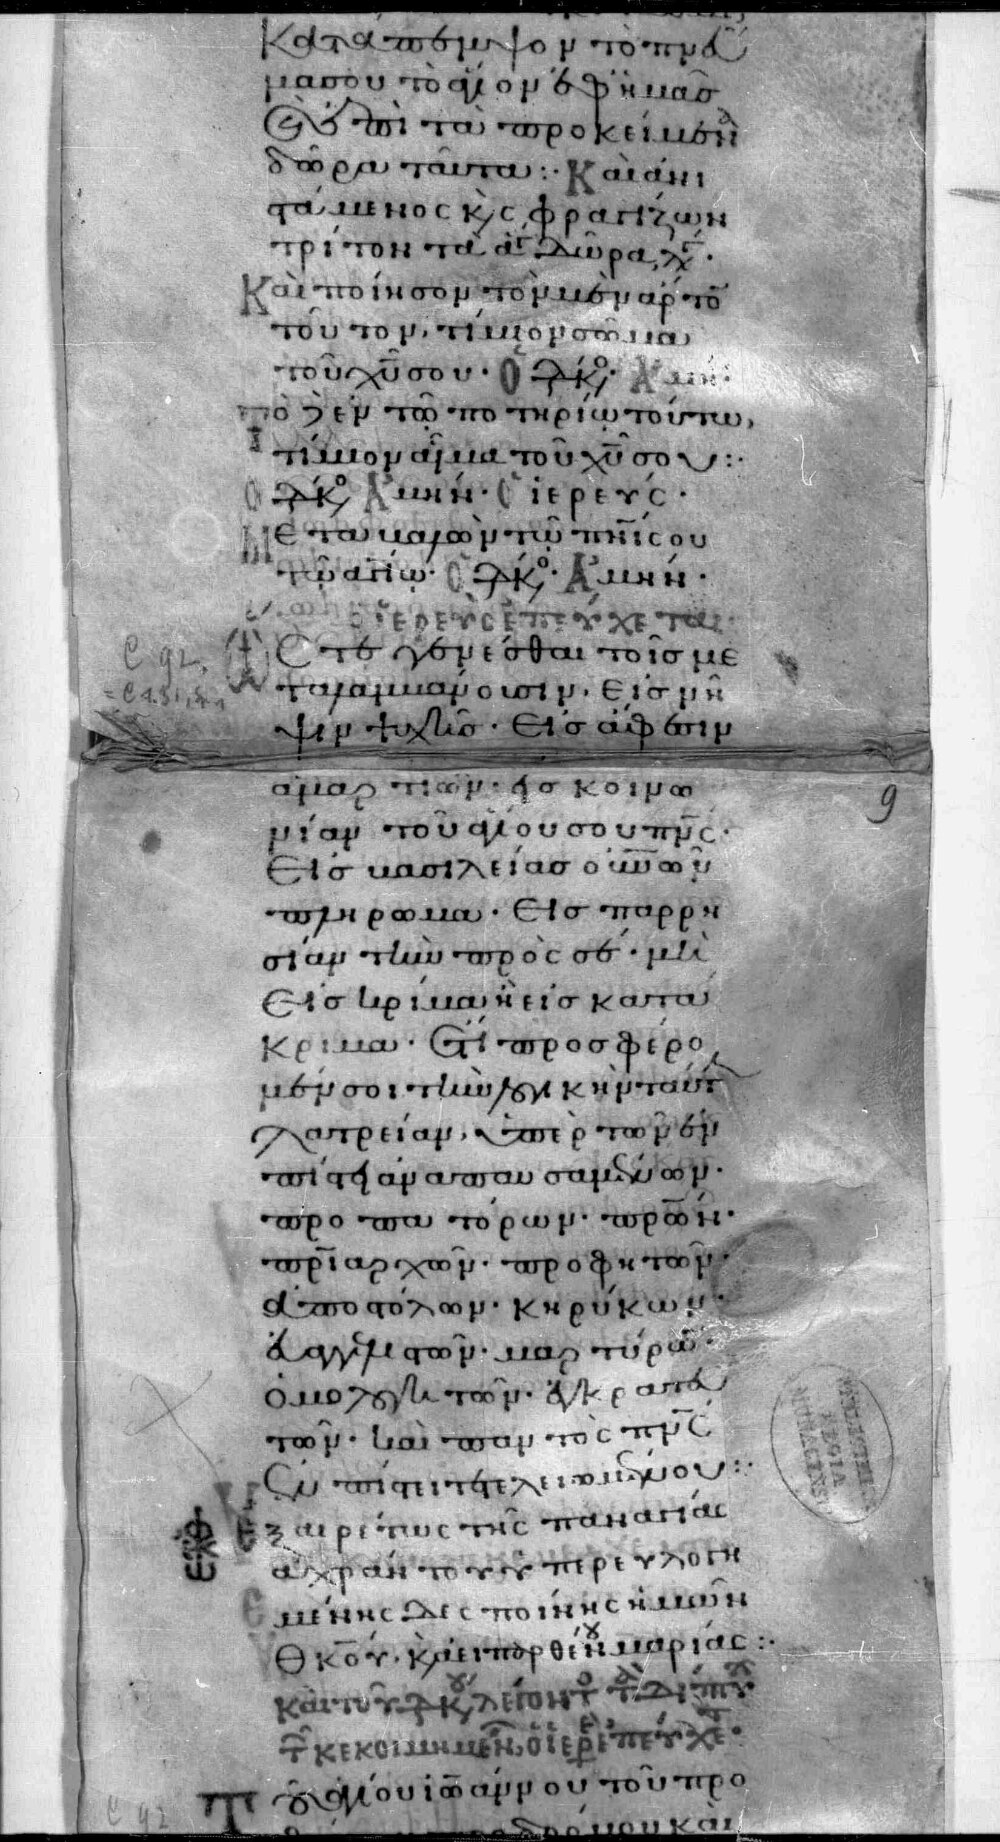 Κατάπεμψον τὸ πνᾶ
μα σου τὸ ἅγιον ἐφ' ἡμᾶσ
καὶ ἐπὶ τὰ προκείμενα
δῶρα ταῦτα:· Καὶ ἀνι
στάμενος κ(αὶ) σφραγίζων
τρίτον τὰ ἅγ δῶρα, λέγ·
Καὶ ποίησον τὸν μὲν ἄρτο
τοῦτον, τίμιον σῶμα
τοῦ χῦ σου· Ὁ διάκο· Ἀμήν·
Τὸ δὲ ἐν τῶ ποτηρίω τούτω,
τίμιον αἷμα τοῦ χῦ σου:·
Ὁ διάκ Ἀμήν· Ὁ ἱερεύς·
Μεταβαλὼν τῶ πνί σου
τῶ ἁγίω· Ὁ διάκο· Ἀμήν·
Ὁ ἱερεὺς ἐπεύχεται·
Ὥστε γενέσθαι τοῖσ με
ταλαμβάνουσιν, εἰσ νῆ
ψιν ψυχῆσ· Εἰσ ἄφεσιν
ἁμαρτιῶν· εἰσ κοινω
νίαν τοῦ ἁγίου σου πνσ·
Εἰσ βασιλείασ οὐνῶν
πλήρωμα· Εἰσ παρρη
σίαν τὴν πρὸς σέ· μὴ
Εἰσ κρίμα ἢ εἰσ κατά
κριμα· Ἔτι προσφέρο
μέν σοι τὴν λογικὴν ταύτ
λατρείαν, ὑπὲρ τῶν ἐν
πίστει ἀναπαυσαμένων·
προπατόρων· πρῶν·
πριαρχῶν· προφητῶν·
ἀποστόλων· κηρύκων·
εὐαγγελιστῶν· μαρτύρω·
ὁμολογητῶν· ἐγκρατευ
τῶν· καὶ παντὸς πνσ
Ἐν πίστει τετελειωμένου:·
Ἐξαιρέτως τῆς παναγίας
ἀχράντου ὑπερευλογη
μένης δεσποίνης ἡμῶν
Θκου· κ(αὶ) ἀειπαρθένου μαρίας:·
καὶ τοῦ διακ λέγοντο τὰ δίπτυχ
τ κεκοιμημέν, ὁ ἱερε ἐπεύχετ·
Τοῦ ἁγίου ἰωάννου τοῦ προ